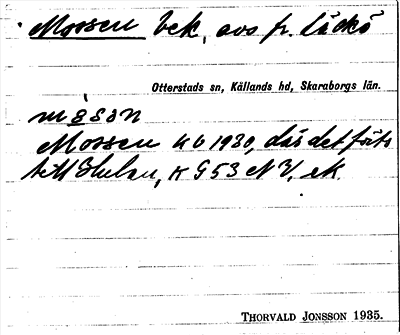 Mossen bek, avs fr. Läckö
Otterstads sn, Källands hd, Skaraborgs län.
Mossen Kb 1930, där det förts
till Skulan, K G53 NV, ek.
THORVALD JONSSON 1935.